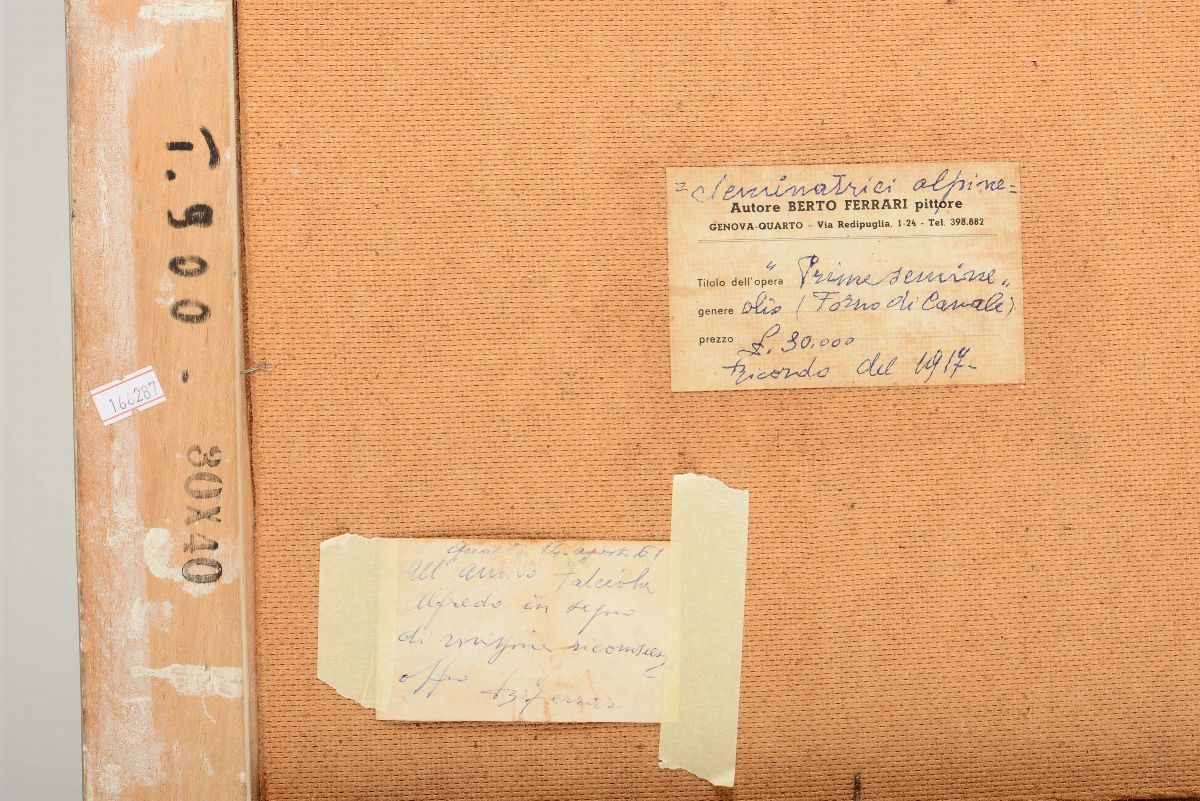 = Seminatrici alpine =
Autore BERTO FERRARI pittore
GENOVA-QUARTO - Via Redipuglia, 1-24 - Tel. 398.882
Titolo dell'opera "Prime semine"
genere olio (Forno di Canale)
prezzo £. 30.000
Ricordo del 1917-
T.900 -
30X40
166287
Quarto 14 agosto 61
All'amico Falciola
Alfredo in segno
di
offro B. Ferrari